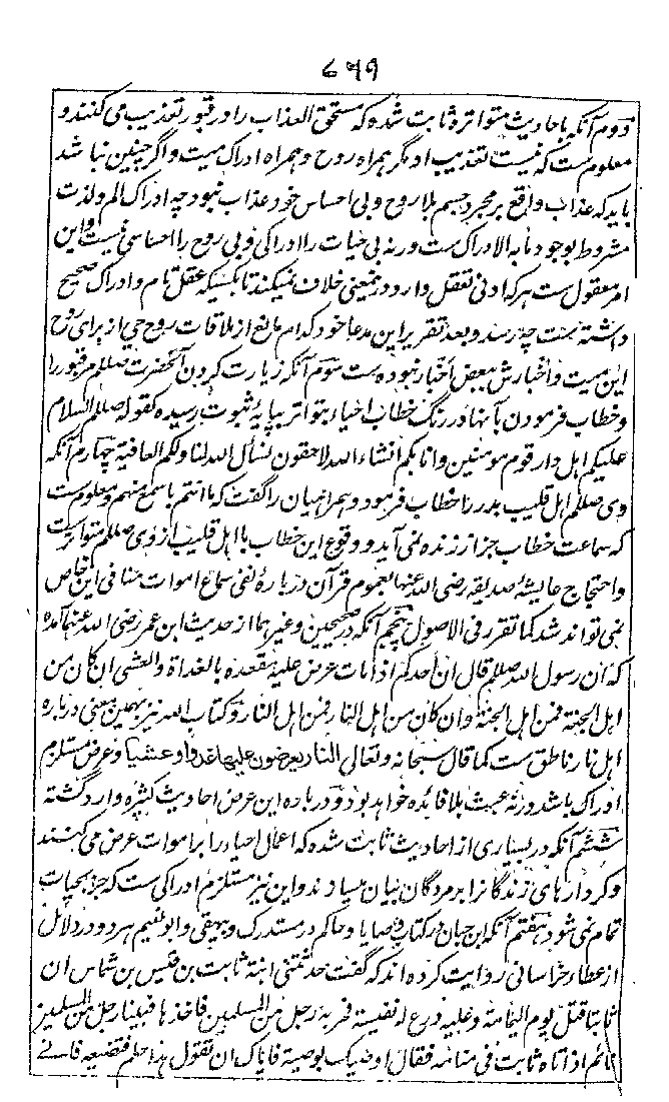 ۶۷۹
دوم آنکه باحادیث متواتره ثابت شده که مستحق العذاب را در قبور تعذیب می کنند و
معلوم ست که نیست تعذیب او مگر همراه روح و همراه ادراک میت و اگر چنین نباشد
باید که عذاب واقع بر مجرد جسم بلا روح و بی احساس خود عذاب نبود چه ادراک الم ولذت
مشروط بوجود ما به الادراک ست ورنه بی حیات را ادراکی و بی روح را احساسی نیست و این
امر معقول ست هر که ادنی تعقل دارد درینمعنی خلاف نمیکند تا بکسیکه عقل تام و ادراک صحیح
داشته ست چه رسد و بعد تقریر این مدعا خود کدام مانع از ملاقات روح حی از برای روح
این میت و اخبارش ببعض اخبار نبوده ست سوم آنکه زیارت کردن آنحضرت صللم مر قبور را
و خطاب فرمودن بآنها در رنگ خطاب احیاء بتواتر بپایۂ ثبوت رسیده کقوله صللم السلام
علیکم اهل دار قوم مومنین وانا بکم انشاء الله لاحقون نسأل الله لنا ولکم العافیة چهارم آنکه
وی صللم اهل قلیب بدر را خطاب فرمود و همراهیان را گفت که ما انتم باسمع منهم و معلوم ست
که سماعت خطاب جز از زنده نمی آید و وقوع این خطاب با اهل قلیب از وی صللم متواتر ست
و احتجاج عایشه صدیقه رضی الله عنها بعموم قرآن دربارۂ نفی سماع اموات منافی این خاص
نمی تواند شد کما تقرر فی الاصول پنجم آنکه در صحیحین و غیر هما از حدیث ابن عمر رضی الله عنهما آمده
که ان رسول الله صللم قال ان احدکم اذا مات عرض علیه مقعده بالغداة والعشی ان کان من
اهل الجنة فمن اهل الجنة وان کان من اهل النار فمن اهل النار و کتاب الله نیز بهمین معنی درباره
اهل نار ناطق ست کما قال سبحانه وتعالی النار یعرضون علیها غدوا وعشیا و عرض مستلزم
ادراک باشد ورنه عبث بلا فائده خواهد بود و درباره این عرض احادیث کثیره وارد گشته
ششم آنکه در بسیاری از احادیث ثابت شده که اعمال احیا را بر اموات عرض می کنند
و کردارهای زندگانرا بر مردگان بیان میسازند و این نیز مستلزم ادراکی ست که جز بحیات
تمام نمی شود هفتم آنکه ابن حبان در کتاب وصایا و حاکم در مستدرک و بیهقی و ابو نعیم هر دو در دلائل
از عطاء خراسانی روایت کرده اند که گفت حدثتنی ابنة ثابت بن قیس بن شماس ان
ثابتا قتل یوم الیمامة وعلیه درع له نفیسة فمر به رجل من المسلمین فاخذها فبینا رجل من المسلمین
نائم اذ اتاه ثابت فی منامه فقال اوصیک بوصیة فایاک ان تقول هذا حلم فتضیعه فانی